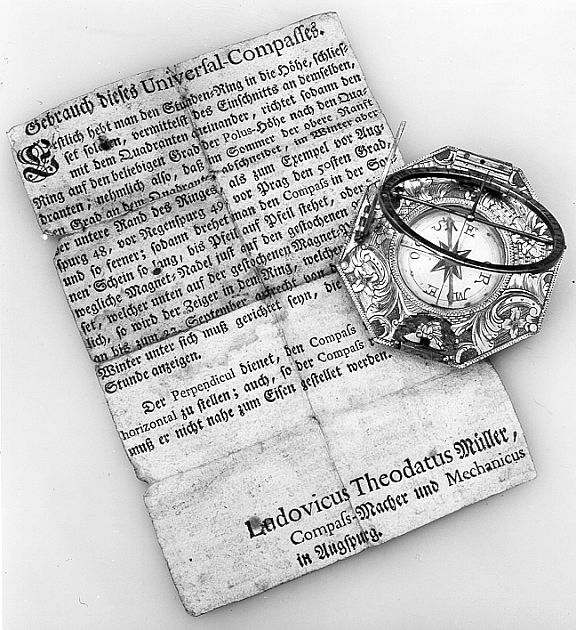 Gebrauch dieses Univerſal-Compaſſes.
Erſtlich hebt man den Stunden-Ring in die Höhe, ſchlieſ-
ſet ſolchen, vermittelſt des Einſchnitts an demſelben,
mit dem Quadranten aneinander, richtet ſodann den
Ring auf den beliebigen Grad der Polus-Höhe nach den Qua-
dranten; nehmlich alſo, daß im Sommer der obere Ranft
den Grad an dem Quadranten abſchneidet, im Winter aber
der untere Rand des Ringes, als zum Exempel vor Aug
ſpurg 48, vor Regenſpurg 49, vor Prag den 50ſten Grad,
und ſo ferner; ſodann drehet man den Compaſs in der So
nen Schein ſo lang, bis Pfeil auf Pfeil ſtehet, oder
wegliche Magnet-Nadel juſt auf den geſtochenen
ſet, welcher unten auf der geſtochenen Magnet-
lich, ſo wird der Zeiger in dem Ring, welcher
an bis zum 22. September aufrecht, von
Winter unter ſich muß gerichtet ſeyn, die
Stunde anzeigen.
Der Perpendicul dienet, den Compaſs
horizontal zu ſtellen; auch, ſo der Compaſs
muß er nicht nahe zum Eiſen geſtellet werden.
Ludovicus Theodatus Müller,
Compaſs-Macher und Mechanicus
in Augſpurg.
S E R